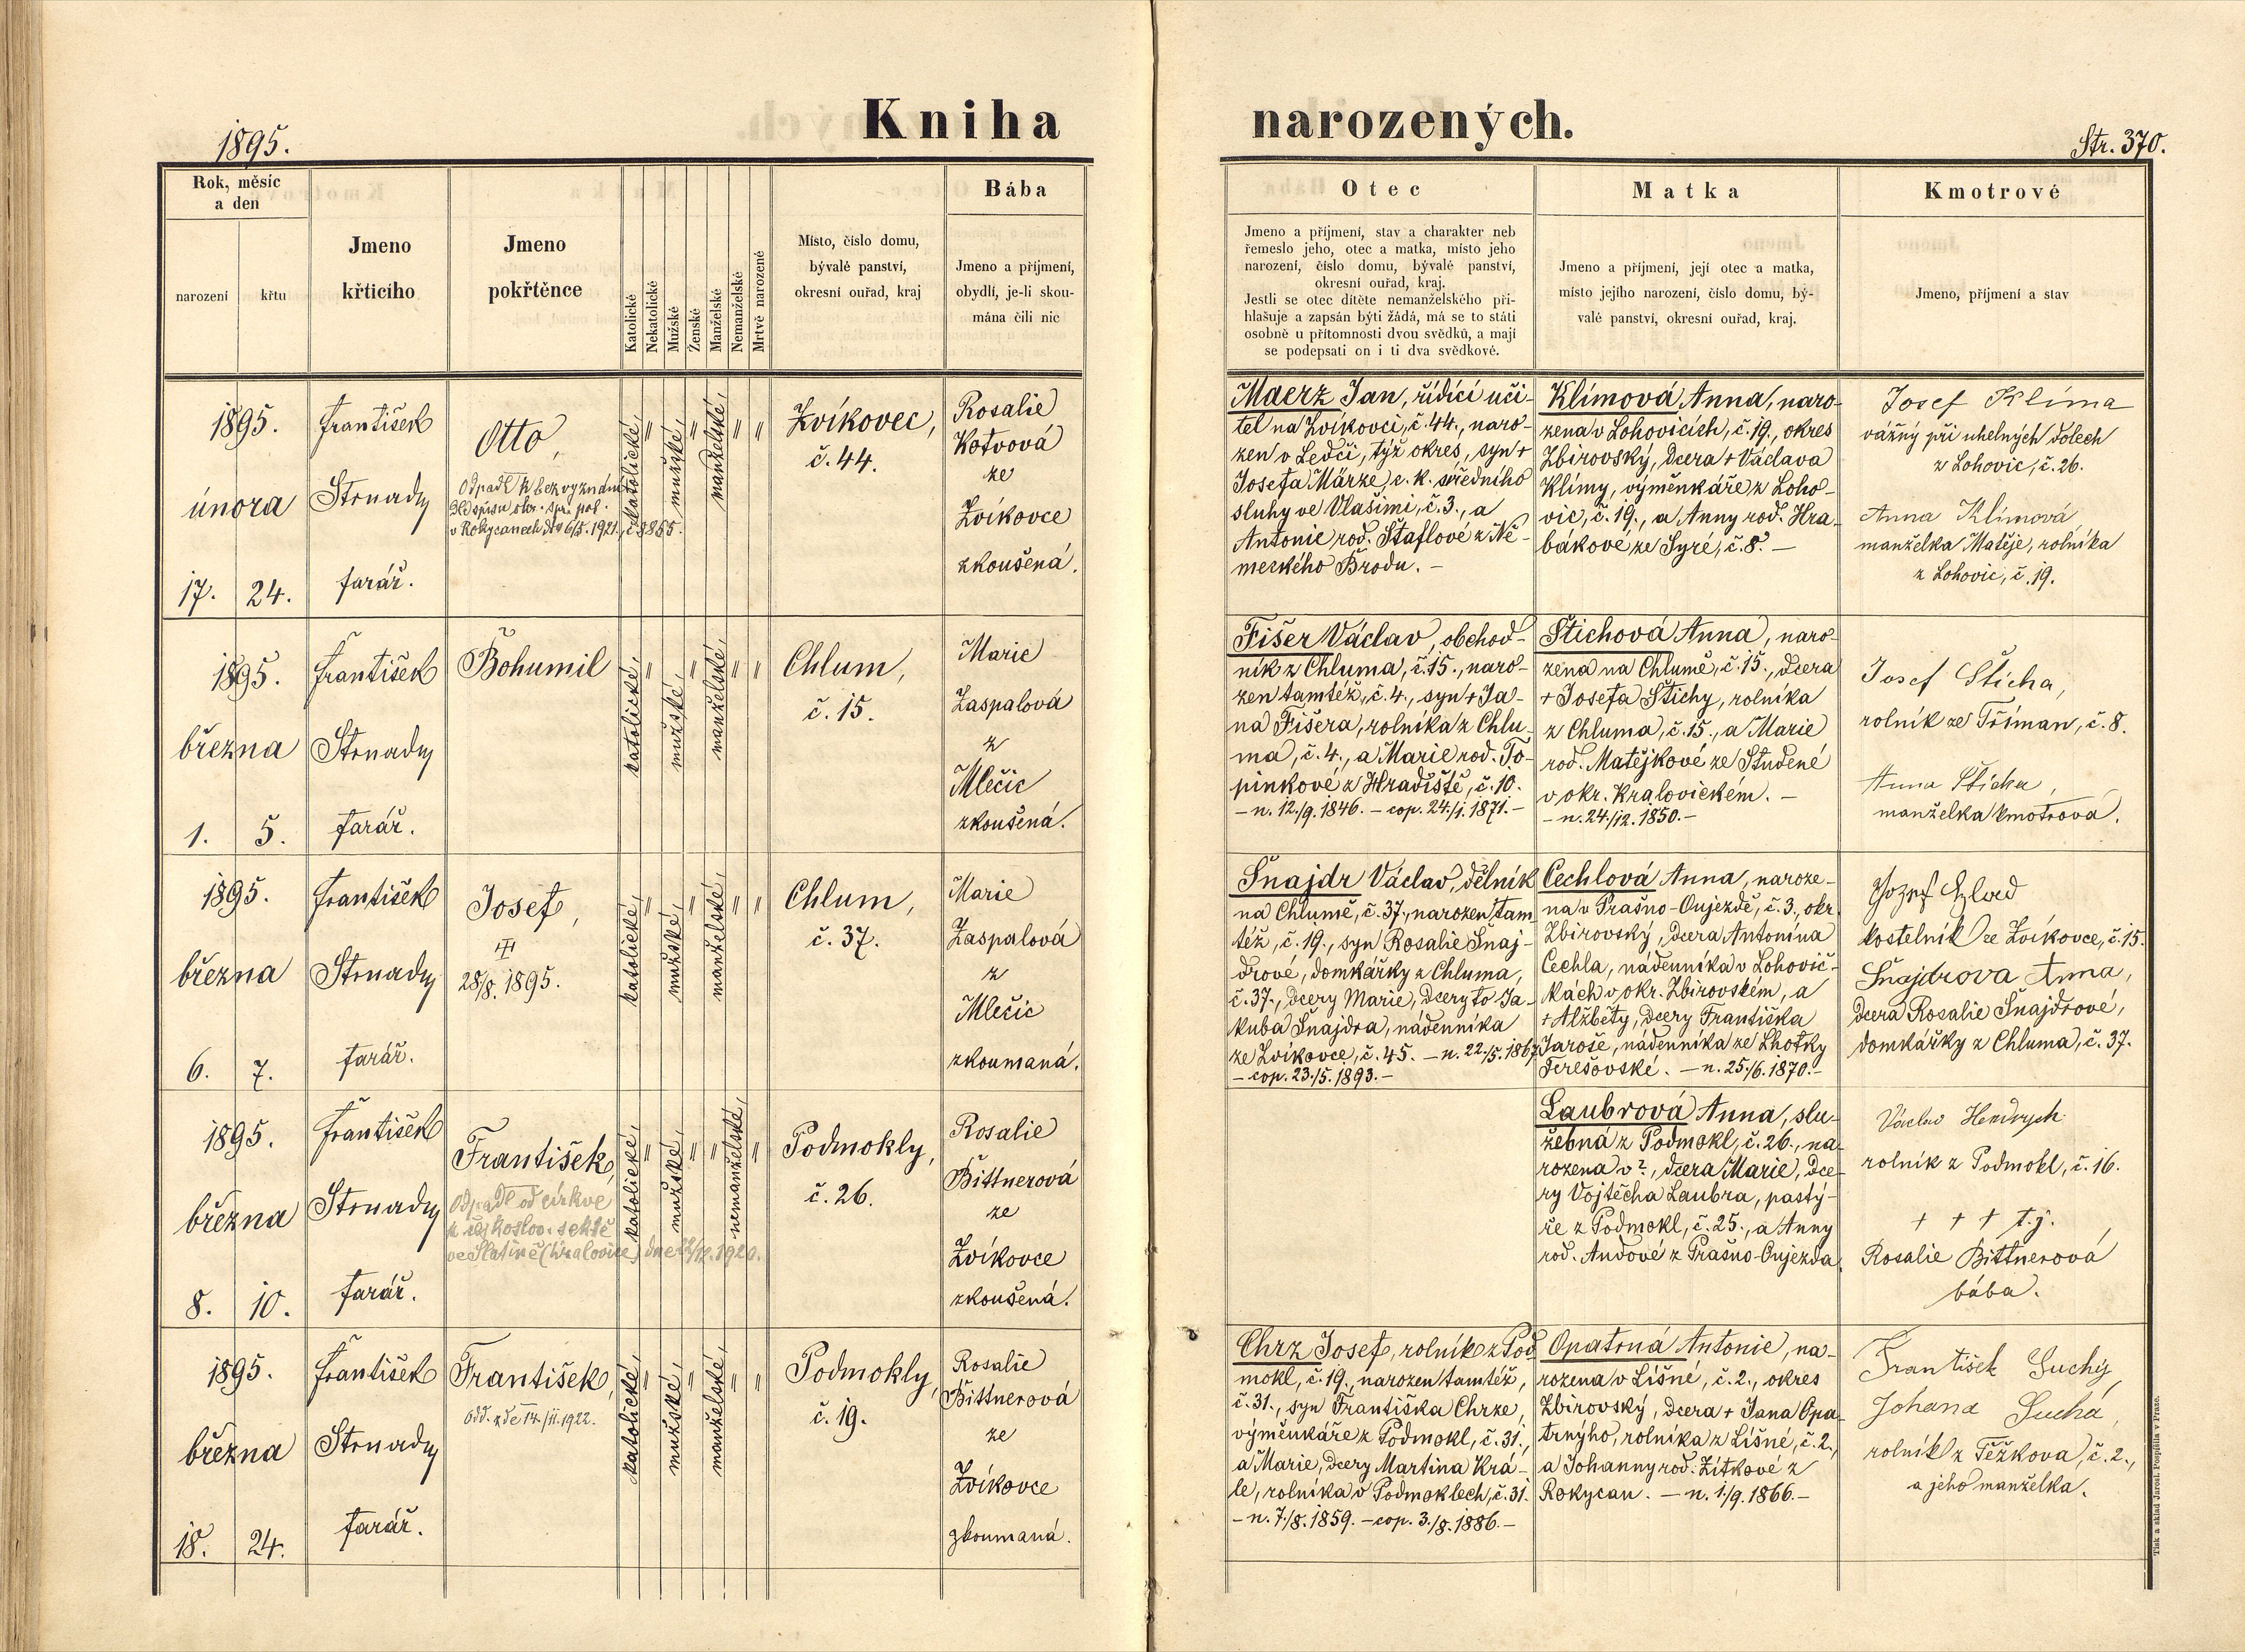 Kniha narozených.
1895.
Str. 370.
Rok, měsíc
a den
narození
křtu
Jmeno
křticího
Jmeno
pokřtěnce
Katolické
Nekatolické
Mužské
Ženské
Manželské
Nemanželské
Mrtvě narozené
Místo, číslo domu,
bývalé panství,
okresní ouřad, kraj
Bába
Jmeno a příjmení,
obydlí, je-li skou-
mána čili nic
Otec
Jmeno a příjmení, stav a charakter neb
řemeslo jeho, otec a matka, místo jeho
narození, číslo domu, bývalé panství,
okresní ouřad, kraj.
Jestli se otec dítěte nemanželského při-
hlašuje a zapsán býti žádá, má se to státi
osobně u přítomnosti dvou svědků, a mají
se podepsati on i ti dva svědkové.
Matka
Jmeno a příjmení, její otec a matka,
místo jejího narození, číslo domu, bý-
valé panství, okresní ouřad, kraj.
Kmotrové
Jmeno, příjmení a stav
1895.
února
17. 24.
František
Strnady
farář.
Otto,
Odpadl k bezvyznání
dle spisu okr. spr. pol.
v Rokycanech dto 6/5. 1921, č. 3855.
katolické, " mužské, " manželské, " "
Zvíkovec,
č. 44.
Rosalie
Kotvová
ze
Zvíkovce
zkoušená.
Maerz Jan, řídící uči-
tel na Zvíkovci, č. 44., naro-
zen v Ledči, týž okres, syn +
Josefa Märze, c. k. středního
sluhy ve Vlašimi, č. 3., a
Antonie, rod. Štaflové z Ně-
meckého Brodu. –
Klímová Anna, naro-
zena v Lohovicích, č. 19., okres
Zbirovský, dcera + Václava
Klímy, výměnkáře z Loho-
vic, č. 19., a Anny rod. Hra-
bákové ze Syré, č. 8. –
Josef Klíma
vážný při uhelných dolech
z Lohovic, č. 26.
Anna Klímová
manželka Matěje, rolníka
z Lohovic, č. 19.
1895.
března
1. 5.
František
Strnady
farář.
Bohumil
katolické, " mužské, " manželské, " "
Chlum,
č. 15.
Marie
Zaspalová
z
Mlečic
zkoušená.
Fišer Václav, obchod-
ník z Chluma, č. 15., naro-
zen tamtéž, č. 4., syn + Ja-
na Fišera, rolníka z Chlu-
ma, č. 4., a Marie rod. To-
pinkové z Hradiště, č. 10.
– n. 12./9. 1846. – cop. 24./1. 1871. –
Štichová Anna, naro-
zena na Chlumě, č. 15., dcera
+ Josefa Štichy, rolníka
z Chluma, č. 15., a Marie
rod. Matějkové ze Studené
v okr. Kralovickém. –
– n. 24./12. 1850. –
Josef Šticha,
rolník ze Tříman, č. 8.
Anna Šticha,
manželka kmotrova.
1895.
března
6. 7.
František
Strnady
farář.
Josef,
28/8. 1895.
katolické, " mužské, " manželské, " "
Chlum,
č. 37.
Marie
Zaspalová
z
Mlečic
zkoumaná.
Šnajdr Václav, dělník
na Chlumě, č. 37., narozen tam-
též, č. 19., syn Rosalie Šnaj-
drové, domkářky z Chluma,
č. 37., dcery Marie, dcery to Ja-
kuba Šnajdra, nádenníka
ze Zvíkovce, č. 45. – n. 22./5. 1867.
– cop. 23./5. 1893. –
Cechlová Anna, naroze-
na v Prašno-Oujezdě, č. 3., okr.
Zbirovský, dcera Antonína
Cechla, nádenníka v Lohovič-
kách v okr. Zbirovském, a
+ Alžběty, dcery Františka
Jaroše, nádenníka ze Lhotky
Terešovské. – n. 25./6. 1870. –
kostelník ze Zvíkovce, č. 15.
Šnajdrova Anna,
dcera Rosalie Šnajdrové,
domkářky z Chluma, č. 37.
1895.
března
8. 10.
František
Strnady
farář.
František,
Odpadl od církve
k českoslov. sektě
ve Slatině (Kralovice) dne 1920.
katolické, " mužské, " " nemanželské, "
Podmokly,
č. 26.
Rosalie
Bittnerová
ze
Zvíkovce
zkoušená.
Laubrová Anna, slu-
žebná z Podmokl, č. 26., na-
rozena v ?, dcera Marie, dce-
ry Vojtěcha Laubra, pastý-
ře z Podmokl, č. 25., a Anny
rod. Audové z Prašno-Oujezda.
Václav Hendrych
rolník z Podmokl, č. 16.
+ + + t. j.
Rosalie Bittnerová
bába.
1895.
března
18. 24.
František
Strnady
farář.
František,
Odd. zde 14./11. 1922.
katolické, " mužské, " manželské, " "
Podmokly,
č. 19.
Rosalie
Bittnerová
ze
Zvíkovce
zkoumaná.
Chrz Josef, rolník z Pod-
mokl, č. 19., narozen tamtéž,
č. 31., syn Františka Chrze,
výměnkáře z Podmokl, č. 31.,
a Marie, dcery Martina Krá-
le, rolníka v Podmoklech, č. 31.
– n. 7./8. 1859. – cop. 3./8. 1886. –
Opatrná Antonie, na-
rozena v Líšné, č. 2., okres
Zbirovský, dcera + Jana Opa-
trnýho, rolníka z Líšné, č. 2.,
a Johanny rod. Zítkové z
Rokycan. – n. 1./9. 1866. –
František Suchý,
Johana Suchá,
rolník z Těžkova, č. 2.,
a jeho manželka.
Tisk a sklad Jarosl. Pospíšila v Praze.